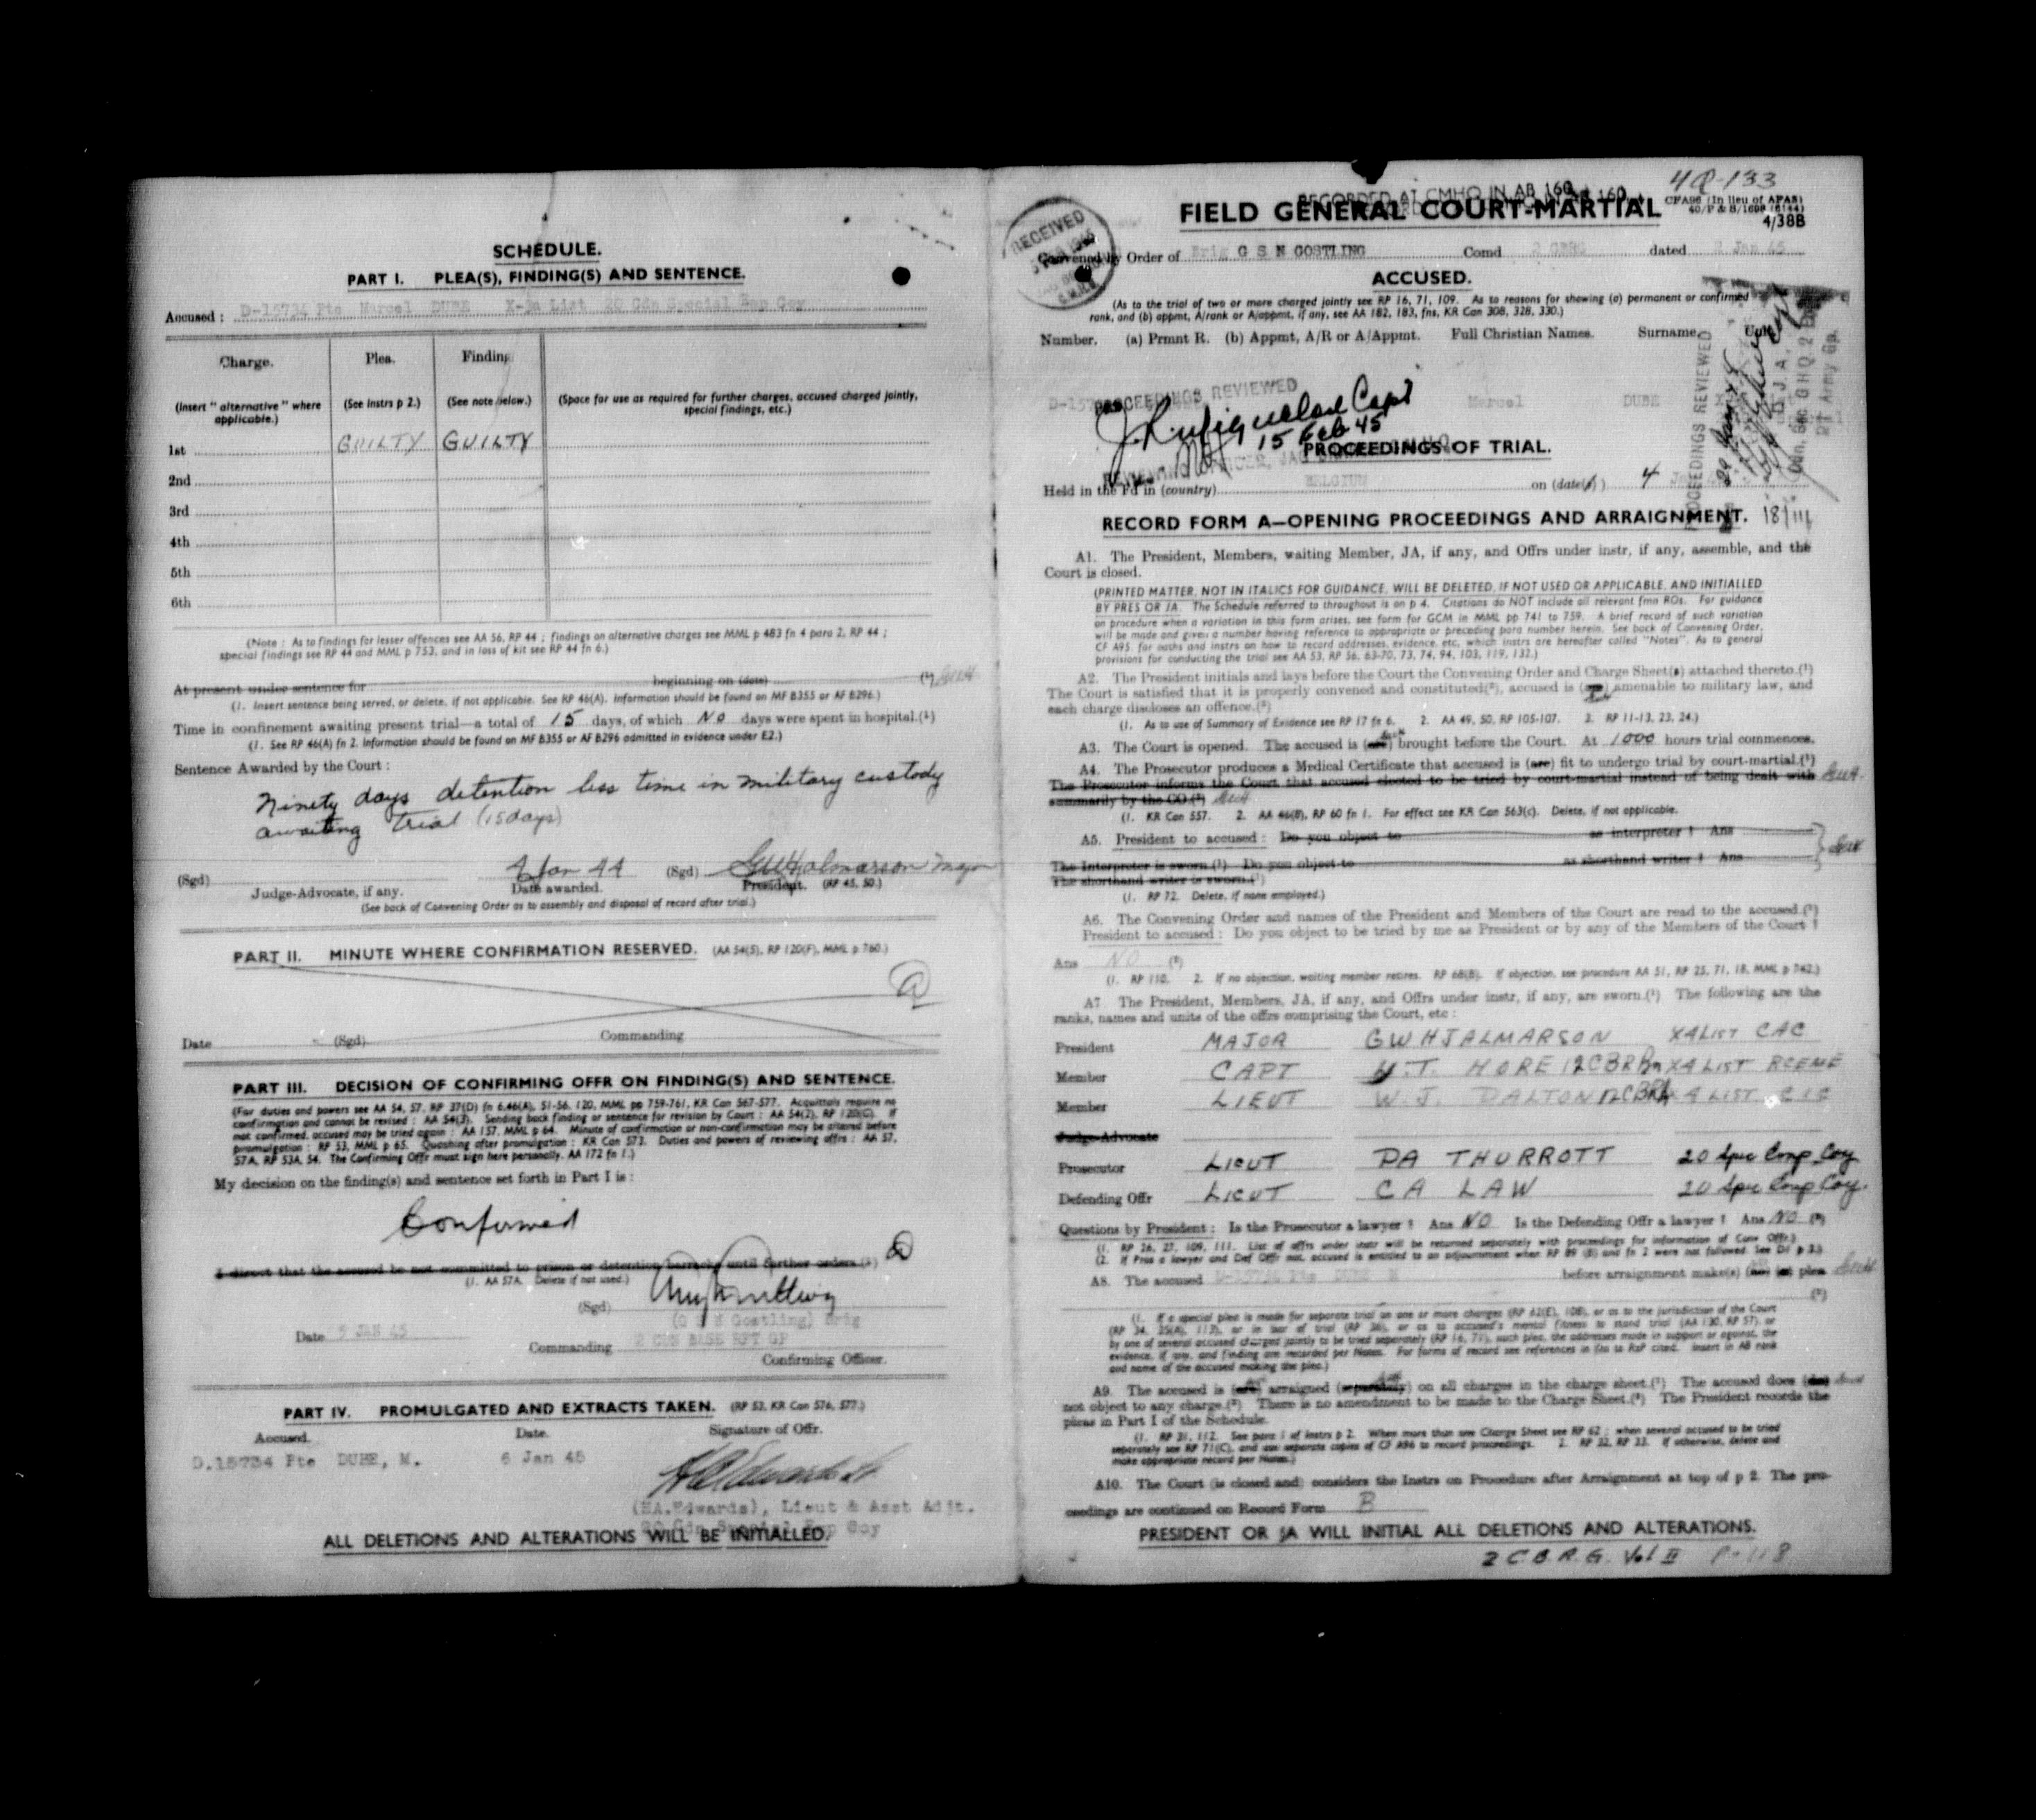 SCHEDULE.
PART I. PLEA(S), FINDING(S) AND SENTENCE.
Accused : D-15734 Pte Marcel DUBE X-3a List 20 Cdn Special Emp Coy
Charge. Plea. Finding.
(Insert " alternative " where applicable.) (See Instrs p 2.) (See note below.) (Space for use as required for further charges, accused charged jointly, special findings, etc.)
1st GUILTY GUILTY
2nd
3rd
4th
5th
6th
(Note : As to findings for lesser offences see AA 56, RP 44 ; findings on alternative charges see MML p 483 fn 4 para 2, RP 44 ;
special findings see RP 44 and MML p 753, and in loss of kit see RP 44 fn 6.)
At present under sentence for beginning on (date) (¹)
(1. Insert sentence being served, or delete, if not applicable. See RP 46(A). Information should be found on MF B355 or AF B296.)
Time in confinement awaiting present trial—a total of 15 days, of which NO days were spent in hospital.(¹)
(1. See RP 46(A) fn 2. Information should be found on MF B355 or AF B296 admitted in evidence under E2.)
Sentence Awarded by the Court :
Ninety days detention less time in military custody
awaiting trial (15 days)
(Sgd) 4 Jan 44 (Sgd) GWHjalmarson Major
Judge-Advocate, if any. Date awarded. President. (RP 45, 50.)
(See back of Convening Order as to assembly and disposal of record after trial.)
PART II. MINUTE WHERE CONFIRMATION RESERVED. (AA 54(5), RP 120(F), MML p 760.)
Date (Sgd) Commanding
PART III. DECISION OF CONFIRMING OFFR ON FINDING(S) AND SENTENCE.
(For duties and powers see AA 54, 57, RP 37(D) fn 6,46(A), 51-56, 120, MML pp 759-761, KR Can 567-577. Acquittals require no
confirmation and cannot be revised : AA 54(3). Sending back finding or sentence for revision by Court : AA 54(2), RP 120(C). If
not confirmed, accused may be tried again : AA 157, MML p 64. Minute of confirmation or non-confirmation may be altered before
promulgation : RP 53, MML p 65. Quashing after promulgation : KR Can 573. Duties and powers of reviewing offrs : AA 57,
57A, RP 53A, 54. The Confirming Offr must sign here personally. AA 172 fn 1.)
My decision on the finding(s) and sentence set forth in Part I is :
Confirmed
I direct that the accused be not committed to prison or detention barracks until further orders.(¹)
(1. AA 57A. Delete if not used.)
(Sgd)
(G S N Gostling) Brig
Date 5 JAN 45
Commanding 2 CDN BASE RFT GP
Confirming Officer.
PART IV. PROMULGATED AND EXTRACTS TAKEN. (RP 53, KR Can 576, 577.)
Accused. Date. Signature of Offr.
D.15734 Pte DUBE, M. 6 Jan 45
(HA.Edwards), Lieut & Asst Adjt.
20 Cdn Special Emp Coy
ALL DELETIONS AND ALTERATIONS WILL BE INITIALLED.
RECORDED AT CMHQ IN AB 160
FIELD GENERAL COURT-MARTIAL
CFA96 (In lieu of AFA3)
4/38B
RECEIVED
Convened by Order of Brig G S N GOSTLING Comd 2 CBRG dated 2 Jan 45
ACCUSED.
(As to the trial of two or more charged jointly see RP 16, 71, 109. As to reasons for showing (a) permanent or confirmed
rank, and (b) appmt, A/rank or A/appmt, if any, see AA 182, 183, fns, KR Can 308, 328, 330.)
Number. (a) Prmnt R. (b) Appmt, A/R or A/Appmt. Full Christian Names. Surname. Unit.
Marcel DUBE
PROCEEDINGS REVIEWED
Capt
15 Feb 45
PROCEEDINGS REVIEWED
PROCEEDINGS OF TRIAL.
Held in the Fd in (country) BELGIUM on (date(s)) 4
RECORD FORM A—OPENING PROCEEDINGS AND ARRAIGNMENT.
A1. The President, Members, waiting Member, JA, if any, and Offrs under instr, if any, assemble, and the
Court is closed.
(PRINTED MATTER, NOT IN ITALICS FOR GUIDANCE, WILL BE DELETED, IF NOT USED OR APPLICABLE, AND INITIALLED
BY PRES OR JA. The Schedule referred to throughout is on p 4. Citations do NOT include all relevant fmn ROs. For guidance
on procedure when a variation in this form arises, see form for GCM in MML pp 741 to 759. A brief record of such variation
will be made and given a number having reference to appropriate or preceding para number herein. See back of Convening Order,
CF A95, for oaths and instrs on how to record addresses, evidence, etc, which instrs are hereafter called "Notes". As to general
provisions for conducting the trial see AA 53, RP 56, 63-70, 73, 74, 94, 103, 119, 132.)
A2. The President initials and lays before the Court the Convening Order and Charge Sheet(s) attached thereto.(¹)
The Court is satisfied that it is properly convened and constituted(²), accused is (are) amenable to military law, and
each charge discloses an offence.(³)
(1. As to use of Summary of Evidence see RP 17 fn 6. 2. AA 49, 50, RP 105-107. 3. RP 11-13, 23, 24.)
A3. The Court is opened. The accused is (are) brought before the Court. At 1000 hours trial commences.
A4. The Prosecutor produces a Medical Certificate that accused is (are) fit to undergo trial by court-martial.(¹)
The Prosecutor informs the Court that accused elected to be tried by court-martial instead of being dealt with
summarily by the CO.(²)
(1. KR Can 557. 2. AA 46(8), RP 60 fn 1. For effect see KR Can 563(c). Delete, if not applicable.
A5. President to accused : Do you object to as interpreter ? Ans
The Interpreter is sworn.(¹) Do you object to as shorthand writer ? Ans
The shorthand writer is sworn.(¹)
(1. RP 72. Delete, if none employed.)
A6. The Convening Order and names of the President and Members of the Court are read to the accused.(¹)
President to accused : Do you object to be tried by me as President or by any of the Members of the Court ?
Ans NO (²)
(1. RP 110. 2. If no objection, waiting member retires. RP 68(B). If objection, see procedure AA 51, RP 25, 71, 18, MML p 742.)
A7. The President, Members, JA, if any, and Offrs under instr, if any, are sworn.(¹) The following are the
ranks, names and units of the offrs comprising the Court, etc :
President MAJOR GWHJALMARSON X4 LIST CAC
Member CAPT H.T. HORE 12CBRBn X4 LIST RCEME
Member LIEUT W. J. DALTON X4 LIST CIC
Judge-Advocate
Prosecutor LIEUT DA THURROTT 20 Spec Emp Coy
Defending Offr LIEUT CA LAW 20 Spec Emp Coy.
Questions by President : Is the Prosecutor a lawyer ? Ans NO Is the Defending Offr a lawyer ? Ans NO (²)
(1. RP 26, 27, 109, 111. List of offrs under instr will be returned separately with proceedings for information of Conv Offr.)
(2. If Pros a lawyer and Def Offr not, accused is entitled to an adjournment when RP 89 (B) and fn 2 were not followed. See D1 p 3.)
A8. The accused D-15734 Pte DUBE M before arraignment make(s) (no) plea
(1. If a special plea is made for separate trial on one or more charges (RP 62(E), 108), or as to the jurisdiction of the Court
(RP 34, 35(A), 113), or in bar of trial (RP 36), or as to accused's mental fitness to stand trial (AA 130, RP 57), or
by one of several accused charged jointly to be tried separately (RP 16, 71), such plea, the addresses made in support or against, the
evidence, if any, and finding are recorded per Notes. For forms of record see references in fns to RsP cited. Insert in A8 rank
and name of the accused making the plea.)
A9. The accused is (are) arraigned (separately) on all charges in the charge sheet.(¹) The accused does (do)
not object to any charge.(²) There is no amendment to be made to the Charge Sheet.(²) The President records the
pleas in Part I of the Schedule.
(1. RP 31, 112. See para 1 of Instrs p 2. When more than one Charge Sheet see RP 62 ; when several accused to be tried
separately see RP 71(C), and use separate copies of CF A96 to record proceedings. 2. RP 32, RP 33. If otherwise, delete and
make appropriate record per Notes.)
A10. The Court (is closed and) considers the Instrs on Procedure after Arraignment at top of p 2. The pro-
ceedings are continued on Record Form B
PRESIDENT OR JA WILL INITIAL ALL DELETIONS AND ALTERATIONS.
2 C.B.R.G. Vol II P-118